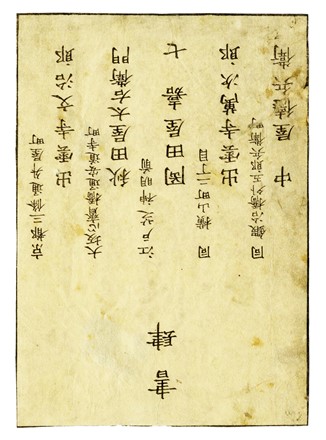 書肆
京都三條通升屋町
出雲寺文治郎
大坂心斎橋通安堂寺町
秋田屋太右衛門
江戸芝神明前
岡田屋嘉七
同 横山町二丁目
出雲寺萬次郎
同 鍛冶橋外五郎兵衛町
中屋徳兵衛